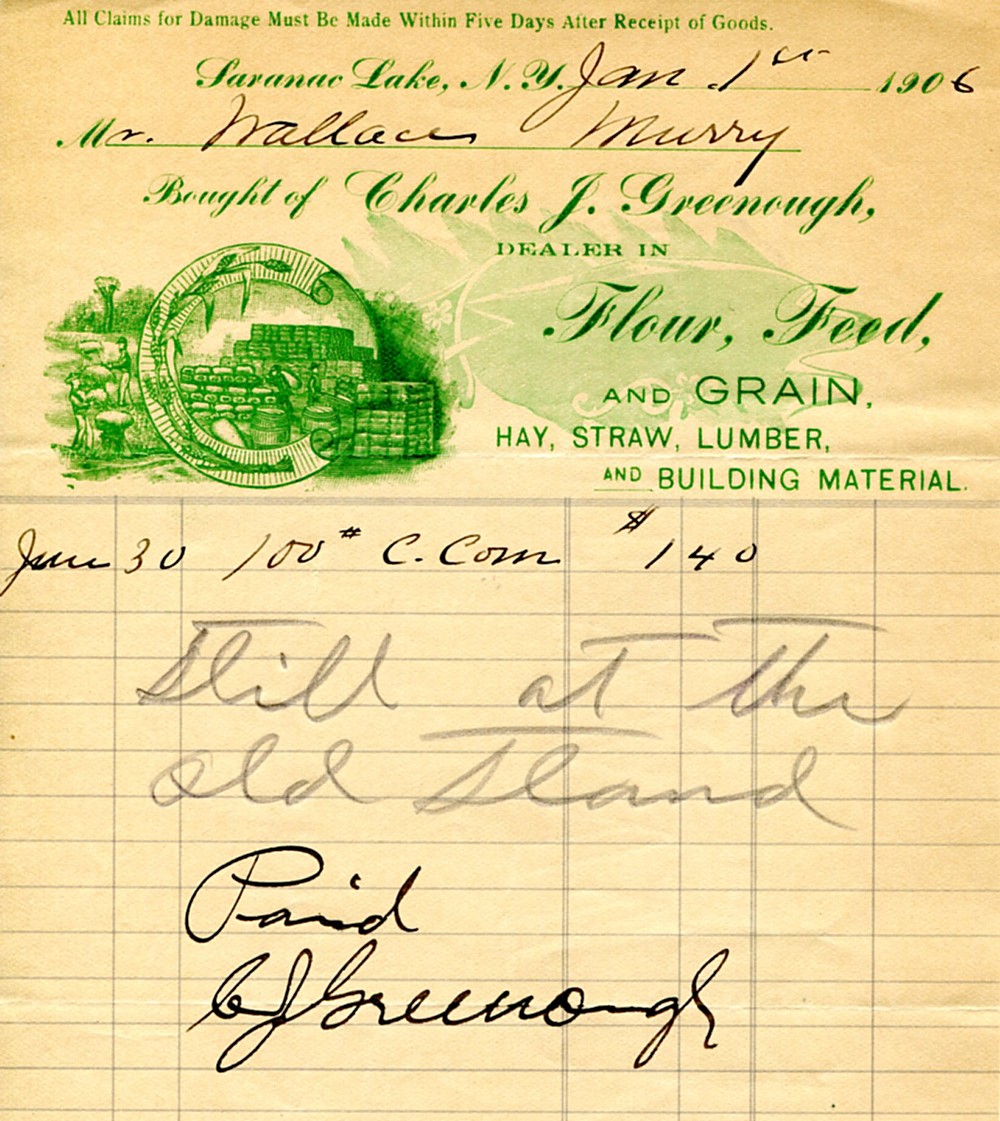 All Claims for Damage Must Be Made Within Five Days After Receipt of Goods.
Saranac Lake, N. Y. Jan 1st 1906
Mr. Wallace Murry
Bought of Charles J. Greenough,
DEALER IN
Flour, Feed,
AND GRAIN,
HAY, STRAW, LUMBER,
AND BUILDING MATERIAL.
June 30 100 # C. Corn $ 1 40
Still at the
old stand
Paid
CJ Greenough